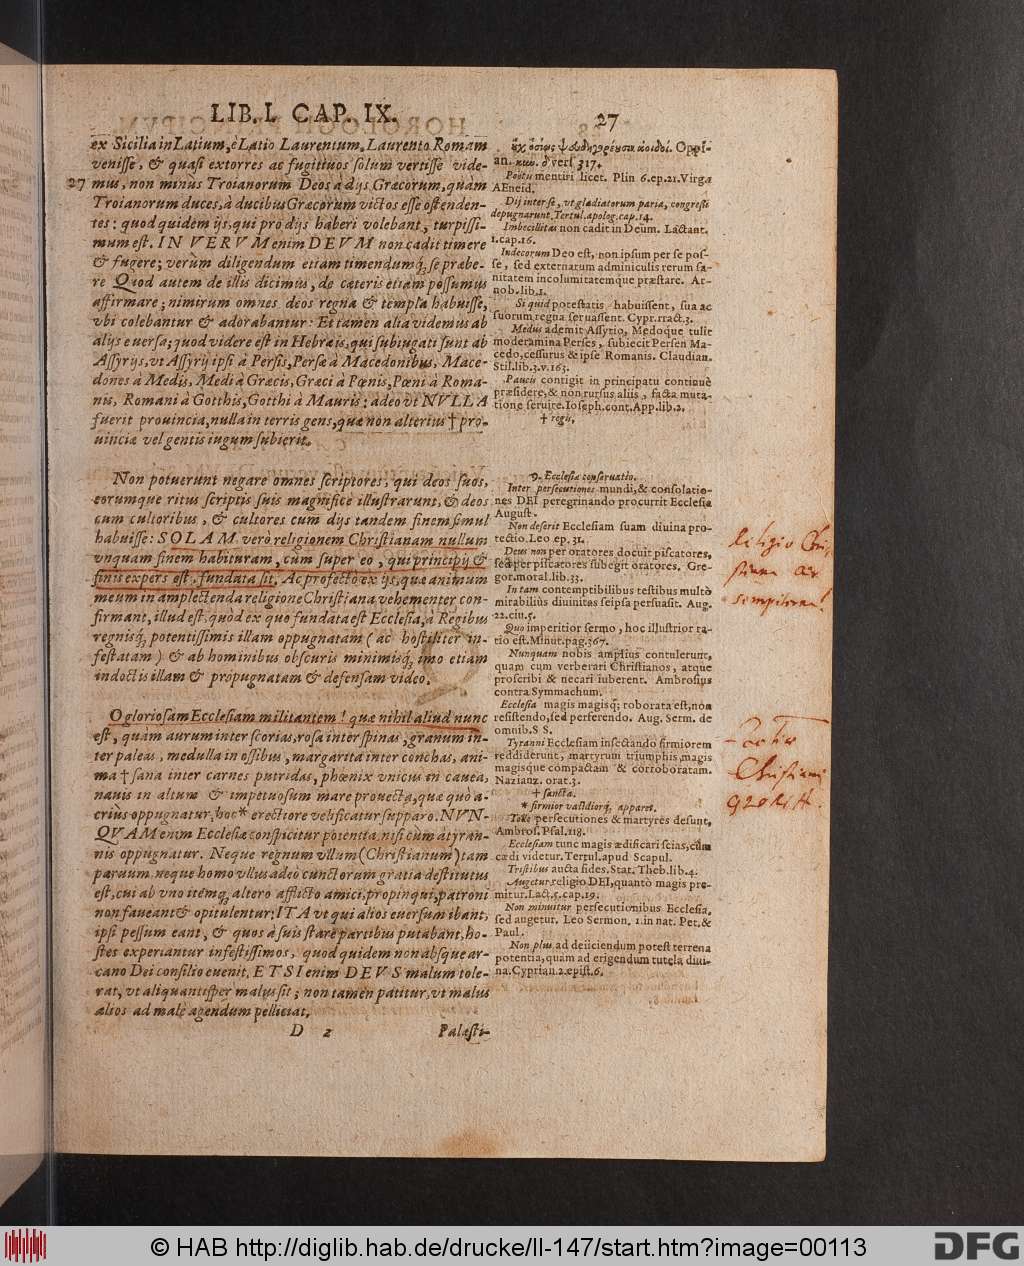 LIB. I. CAP. IX.
27
ex Sicilia in Latium, è Latio Laurentum, Laurento Romam
venisse, & quasi extorres ac fugitiuos solum vertisse vide-
27 mus, non minus Troianorum Deos à dijs Græcorum, quàm
Troianorum duces, à ducibus Græcorum victos esse ostenden-
tes: quod quidem ijs, qui pro dijs haberi volebant, turpissi-
mum est. IN VERVM enim DEVM non cadit timere
& fugere; verùm diligendum etiam timendumq́; se præbe-
re Quod autem de illis dicimus, de cæteris etiam possumus
affirmare; nimirum omnes deos regna & templa habuisse,
vbi colebantur & adorabantur: Et tamen alia videmus ab
alijs euersa; quod videre est in Hebræis, qui subiugati sunt ab
Assyrijs, vt Assyrij ipsi à Persis, Persæ à Macedonibus, Mace-
dones à Medis, Medi à Græcis, Græci à Pœnis, Pœni à Roma-
nis, Romani à Gotthis, Gotthi à Mauris; adeo vt NVLLA
fuerit prouincia, nulla in terris gens, quæ non alterius † pro-
uinciæ vel gentis iugum subierit.
Non potuerunt negare omnes scriptores, qui deos suos,
eorumque ritus scriptis suis magnifice illustrarunt, & deos
cum cultoribus, & cultores cum dijs tandem finem simul
habuisse: SOLAM verò religionem Christianam nullum
vnquam finem habituram, cùm super eo, qui principij &
finis expers est, fundata sit. Ac profectò ex ijs, quæ animum
meum in amplectenda religione Christiana vehementer con-
firmant, illud est, quòd ex quo fundata est Ecclesia, à Regibus
regnisq́; potentissimis illam oppugnatam (ac hostiliter in-
festatam) & ab hominibus obscuris minimisq́; imo etiam
indoctis illam & propugnatam & defensam video.
O gloriosam Ecclesiam militantem! quæ nihil aliud nunc
est, quàm aurum inter scorias, rosa inter spinas, granum in-
ter paleas, medulla in ossibus, margarita inter conchas, ani-
ma † sana inter carnes putridas, phœnix vnicus in cauea,
nauis in altum & impetuosum mare prouecta, quæ quò a-
criùs oppugnatur, hoc * erectiore velificatur supparo. NVN-
QVAM enim Ecclesiæ conspicitur potentia, nisi cùm à tyran-
nis oppugnatur. Neque regnum vllum (Christianum) tam
paruum neque homo vllus adeò cunctorum gratia destitutus
est, cui ab vno itémq, altero afflicto amici, propinqui, patroni
non faueant & opitulentur: ITA vt qui alios euersum ibant,
ipsi pessum eant, & quos à suis stare partibus putabant, ho-
stes experiantur infestissimos, quod quidem non absque ar-
cano Dei consilio euenit. ETSI enim DEVS malum tole-
rat, vt aliquantisper malus sit; non tamen patitur, vt malus
alios ad malè agendum pelliciat.
D 2
Palæsti-
Oppi-
an. vers 317.
Poëtis mentiri licet. Plin 6. ep. 21. Virg.
AEneid.
Dij inter se, vt gladiatorum paria, congressi
depugnarunt. Tertul. apolog. cap. 14.
Imbecillitas non cadit in Deum. Lactant.
1. cap. 16.
Indecorum Deo est, non ipsum per se pos-
se, sed externarum adminiculis rerum sa-
nitatem incolumitatemque præstare. Ar-
nob. lib. 1.
Si quid potestatis habuissent, sua ac
suorum regna seruassent. Cypr. tract. 3.
Medus ademit Assyrio, Medoque tulit
moderamina Perses, subiecit Persen Ma-
cedo, cessurus & ipse Romanis. Claudian.
Stil. lib. 3. v. 163.
Paucis contigit in principatu continuè
præsidere, & non rursus aliis, facta muta-
tione seruire. Ioseph. cont. App. lib. 2.
† regii.
9. Ecclesiæ conseruatio.
Inter persecutiones mundi, & consolatio-
nes DEI peregrinando procurrit Ecclesia
August.
Non deserit Ecclesiam suam diuina pro-
tectio. Leo ep. 31.
Deus non per oratores docuit piscatores,
sed per piscatores subegit oratores. Gre-
gor. moral. lib. 33.
In tam contemptibilibus testibus multò
mirabiliùs diuinitas seipsa persuasit. Aug.
22. ciu. 5.
Quò imperitior sermo, hoc illustrior ra-
tio est. Minut. pag. 367.
Nunquam nobis amplius contulerunt,
quàm cùm verberari Christianos, atque
proscribi & necari iuberent. Ambrosius
contra Symmachum.
Ecclesia magis magisq; roborata est, non
resistendo, sed perferendo. Aug. Serm. de
omnib. S S.
Tyranni Ecclesiam insectando firmiorem
reddiderunt, martyrum triumphis, magis
magisque compactam & corroboratam.
Nazianz. orat. 3.
† sancta.
* firmior validiorq, apparet.
Tolle persecutiones & martyres desunt,
Ambros. Psal. 118.
Ecclesiam tunc magis ædificari scias, cùm
cædi videtur. Tertul. apud Scapul.
Tristibus aucta fides. Stat. Theb. lib. 4.
Augetur religio DEI, quantò magis pre-
mitur. Lact. 5. cap. 19.
Non minuitur persecutionibus Ecclesia,
sed augetur. Leo Sermon. 1. in nat. Pet. &
Paul.
Non plus ad deiiciendum potest terrena
potentia, quàm ad erigendum tutela diui-
na. Cyprian. 2. epist. 6.
Religio Chri-
stiana
sempiterna!
Christiani
© HAB http://diglib.hab.de/drucke/li-147/start.htm?image=00113
DFG